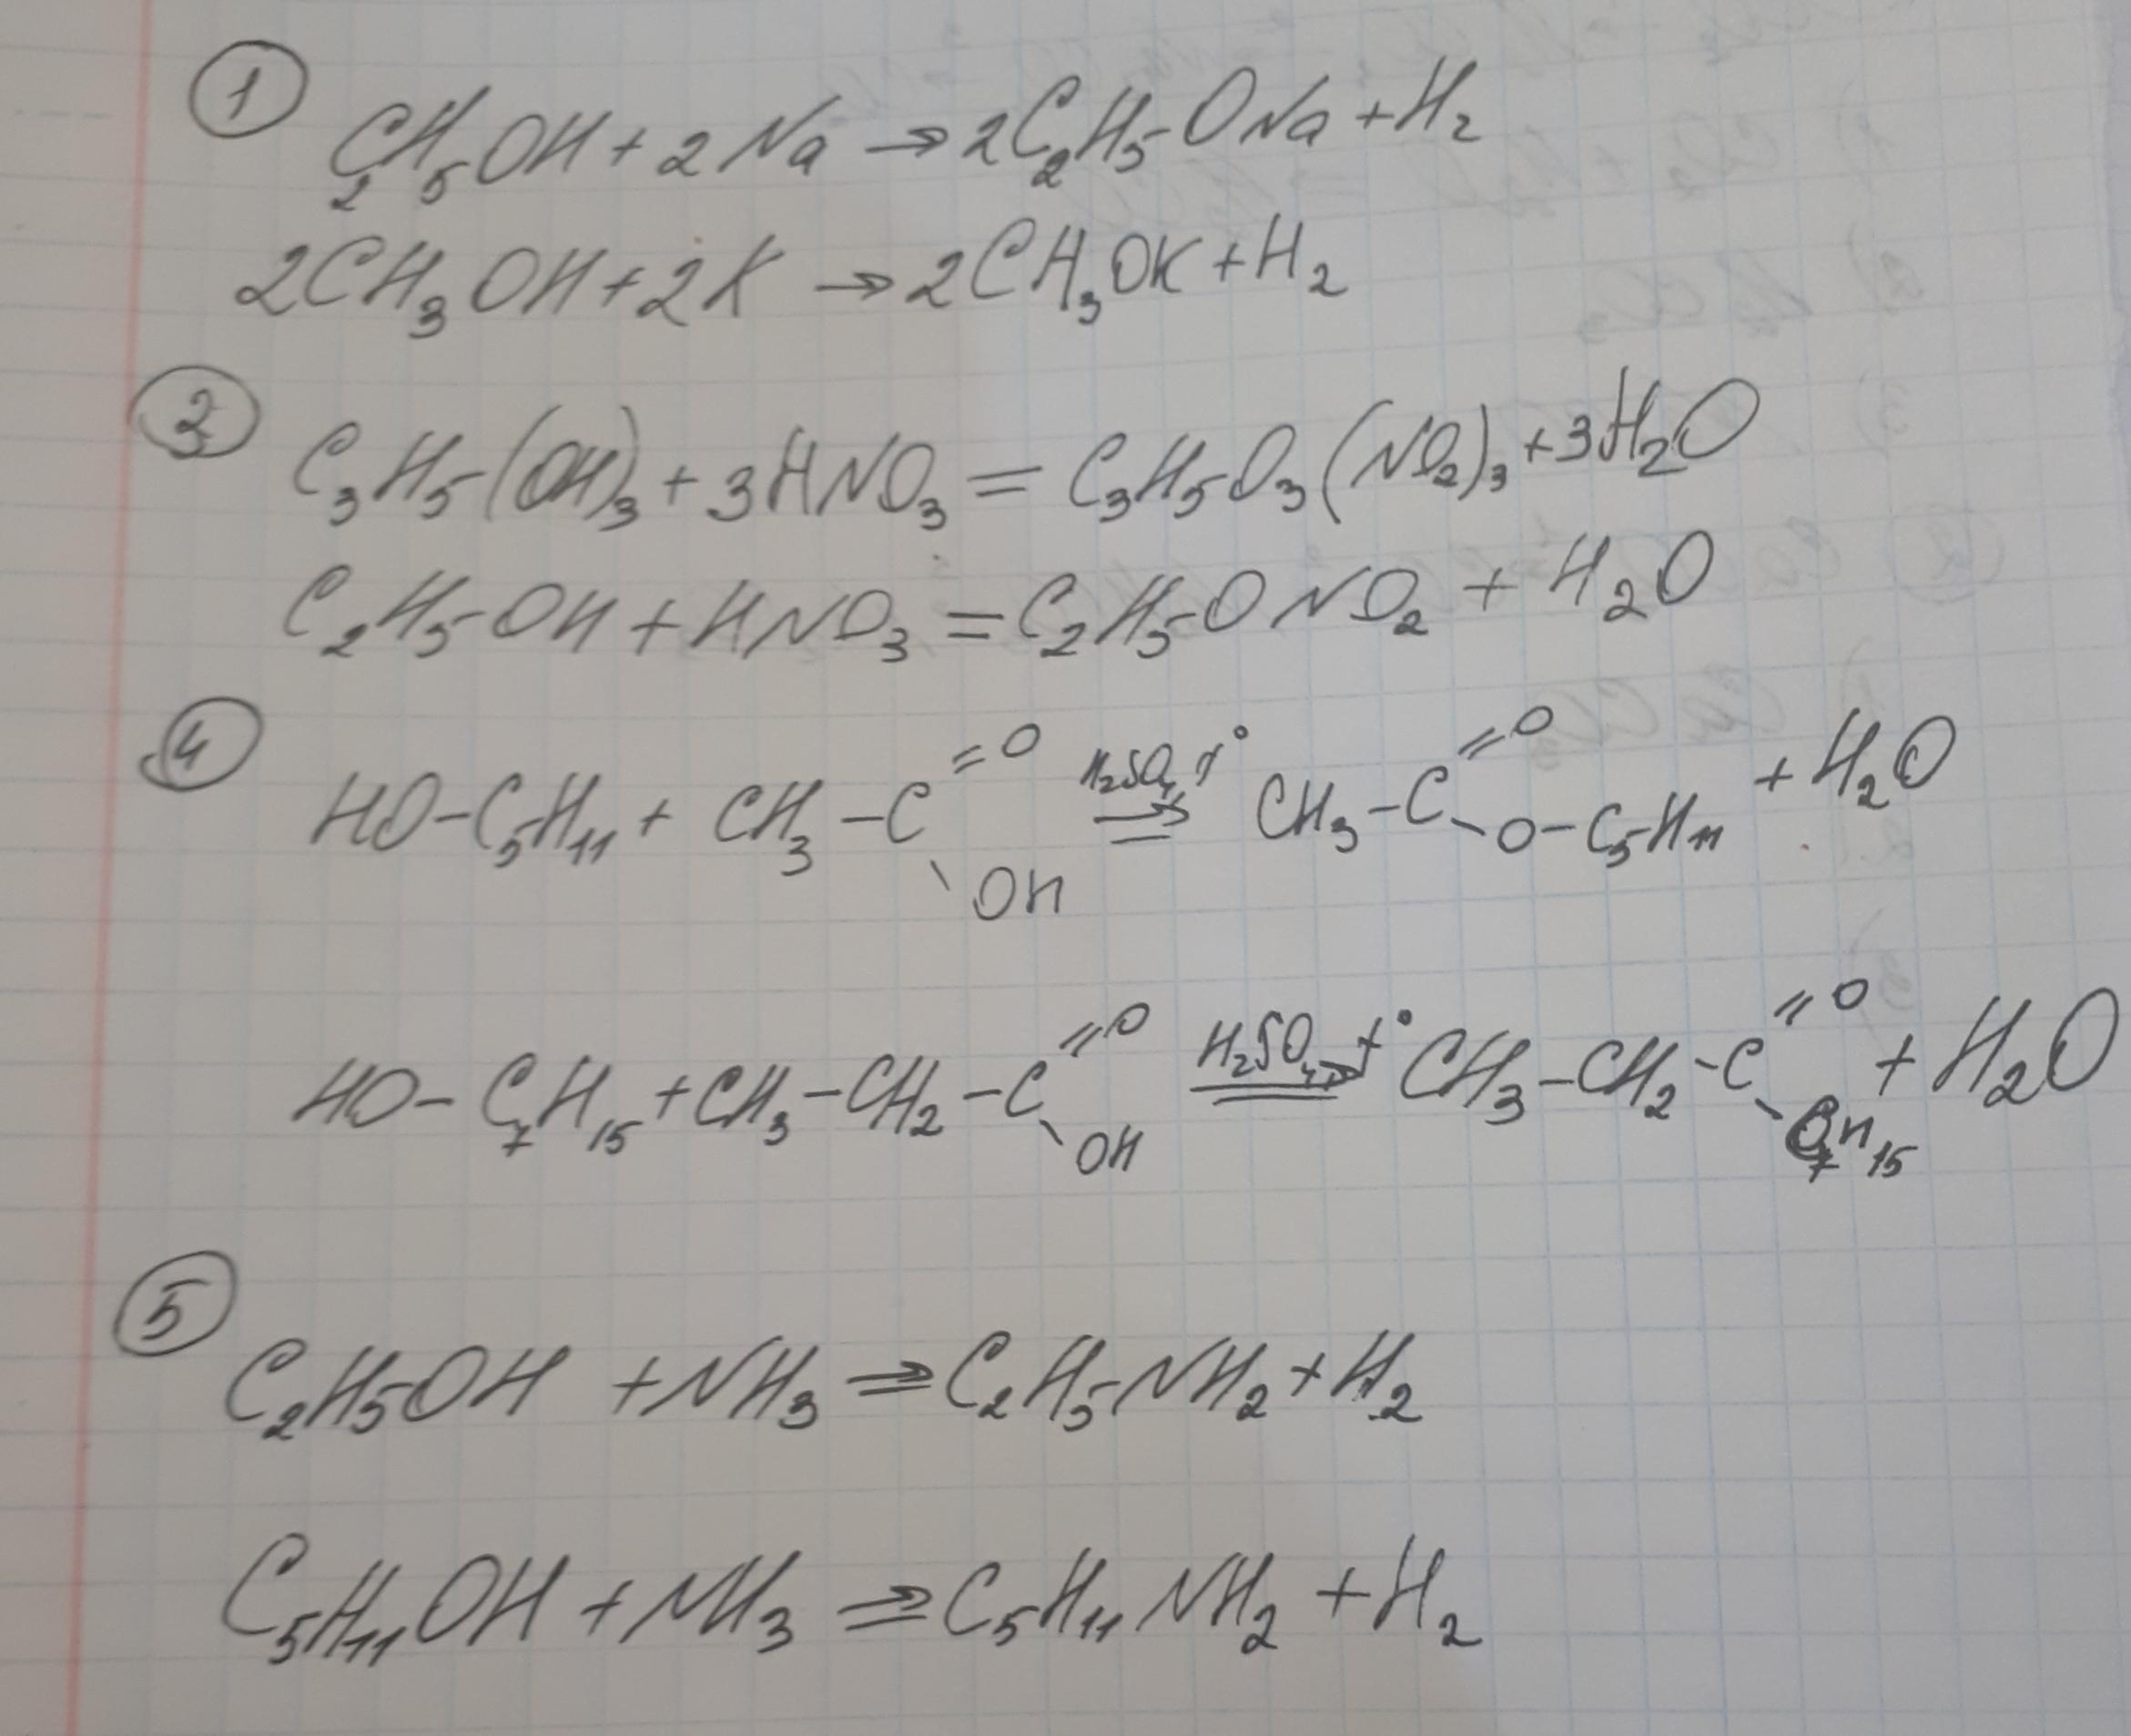 1
C₂H₅OH + 2Na → 2C₂H₅ONa + H₂
2CH₃OH + 2K → 2CH₃OK + H₂
3
C₃H₅(OH)₃ + 3HNO₃ = C₃H₅O₃(NO₂)₃ + 3H₂O
C₂H₅OH + HNO₃ = C₂H₅ONO₂ + H₂O
4
HO-C₅H₁₁ + CH₃-C =O \ OH H₂SO₄, t° ⇌ CH₃-C =O \ O-C₅H₁₁ + H₂O
HO-C₇H₁₅ + CH₃-CH₂-C =O \ OH H₂SO₄, t° ⇌ CH₃-CH₂-C =O \ C₇H₁₅ + H₂O
5
C₂H₅OH + NH₃ ⇌ C₂H₅NH₂ + H₂
C₅H₁₁OH + NH₃ ⇌ C₅H₁₁NH₂ + H₂